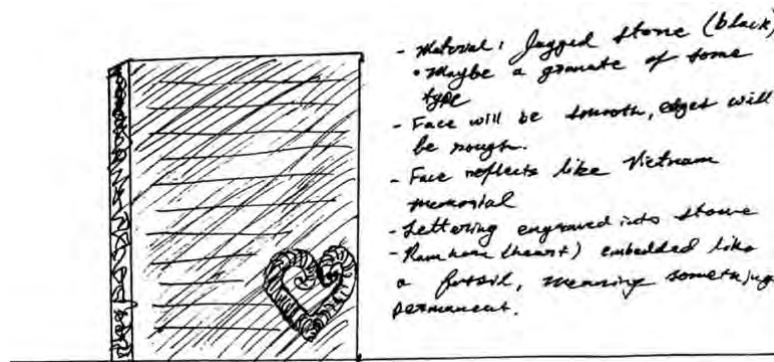 - Material: Jagged stone (black)
• Maybe a granate of some
type
- Face will be smooth, edges will
be rough.
- Face reflects like Vietnam
memorial
- Lettering engraved into stone
- Ram horn (heart) embedded like
a fossil, meaning something
permanent.